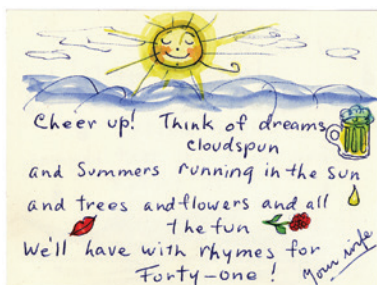 Cheer up! Think of dreams
cloudspun
and Summers running in the sun
and trees and flowers and all
the fun
We'll have with rhymes for
Forty-one!
Your wife